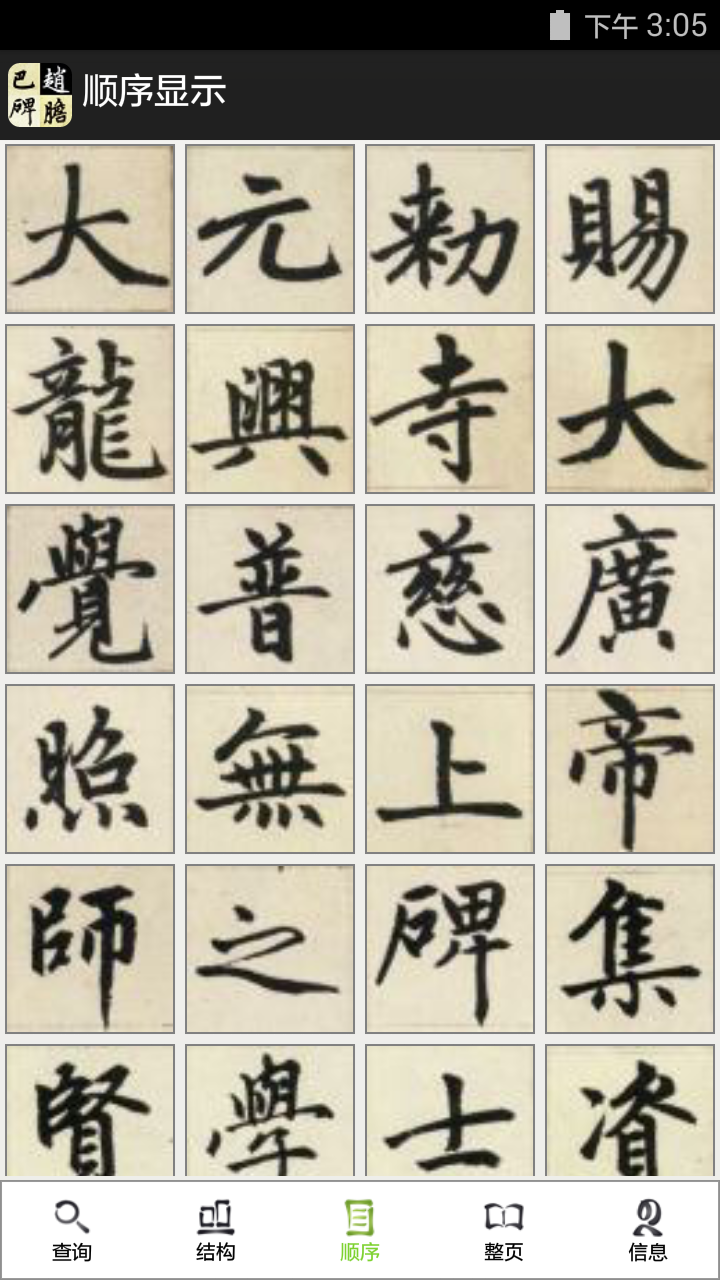 下午 3:05
巴 趙
碑 膽
顺序显示
大 元 勅 賜
龍 興 寺 大
覺 普 慈 廣
照 無 上 帝
師 之 碑 集
賢 學 士 資
查询 结构 顺序 整页 信息